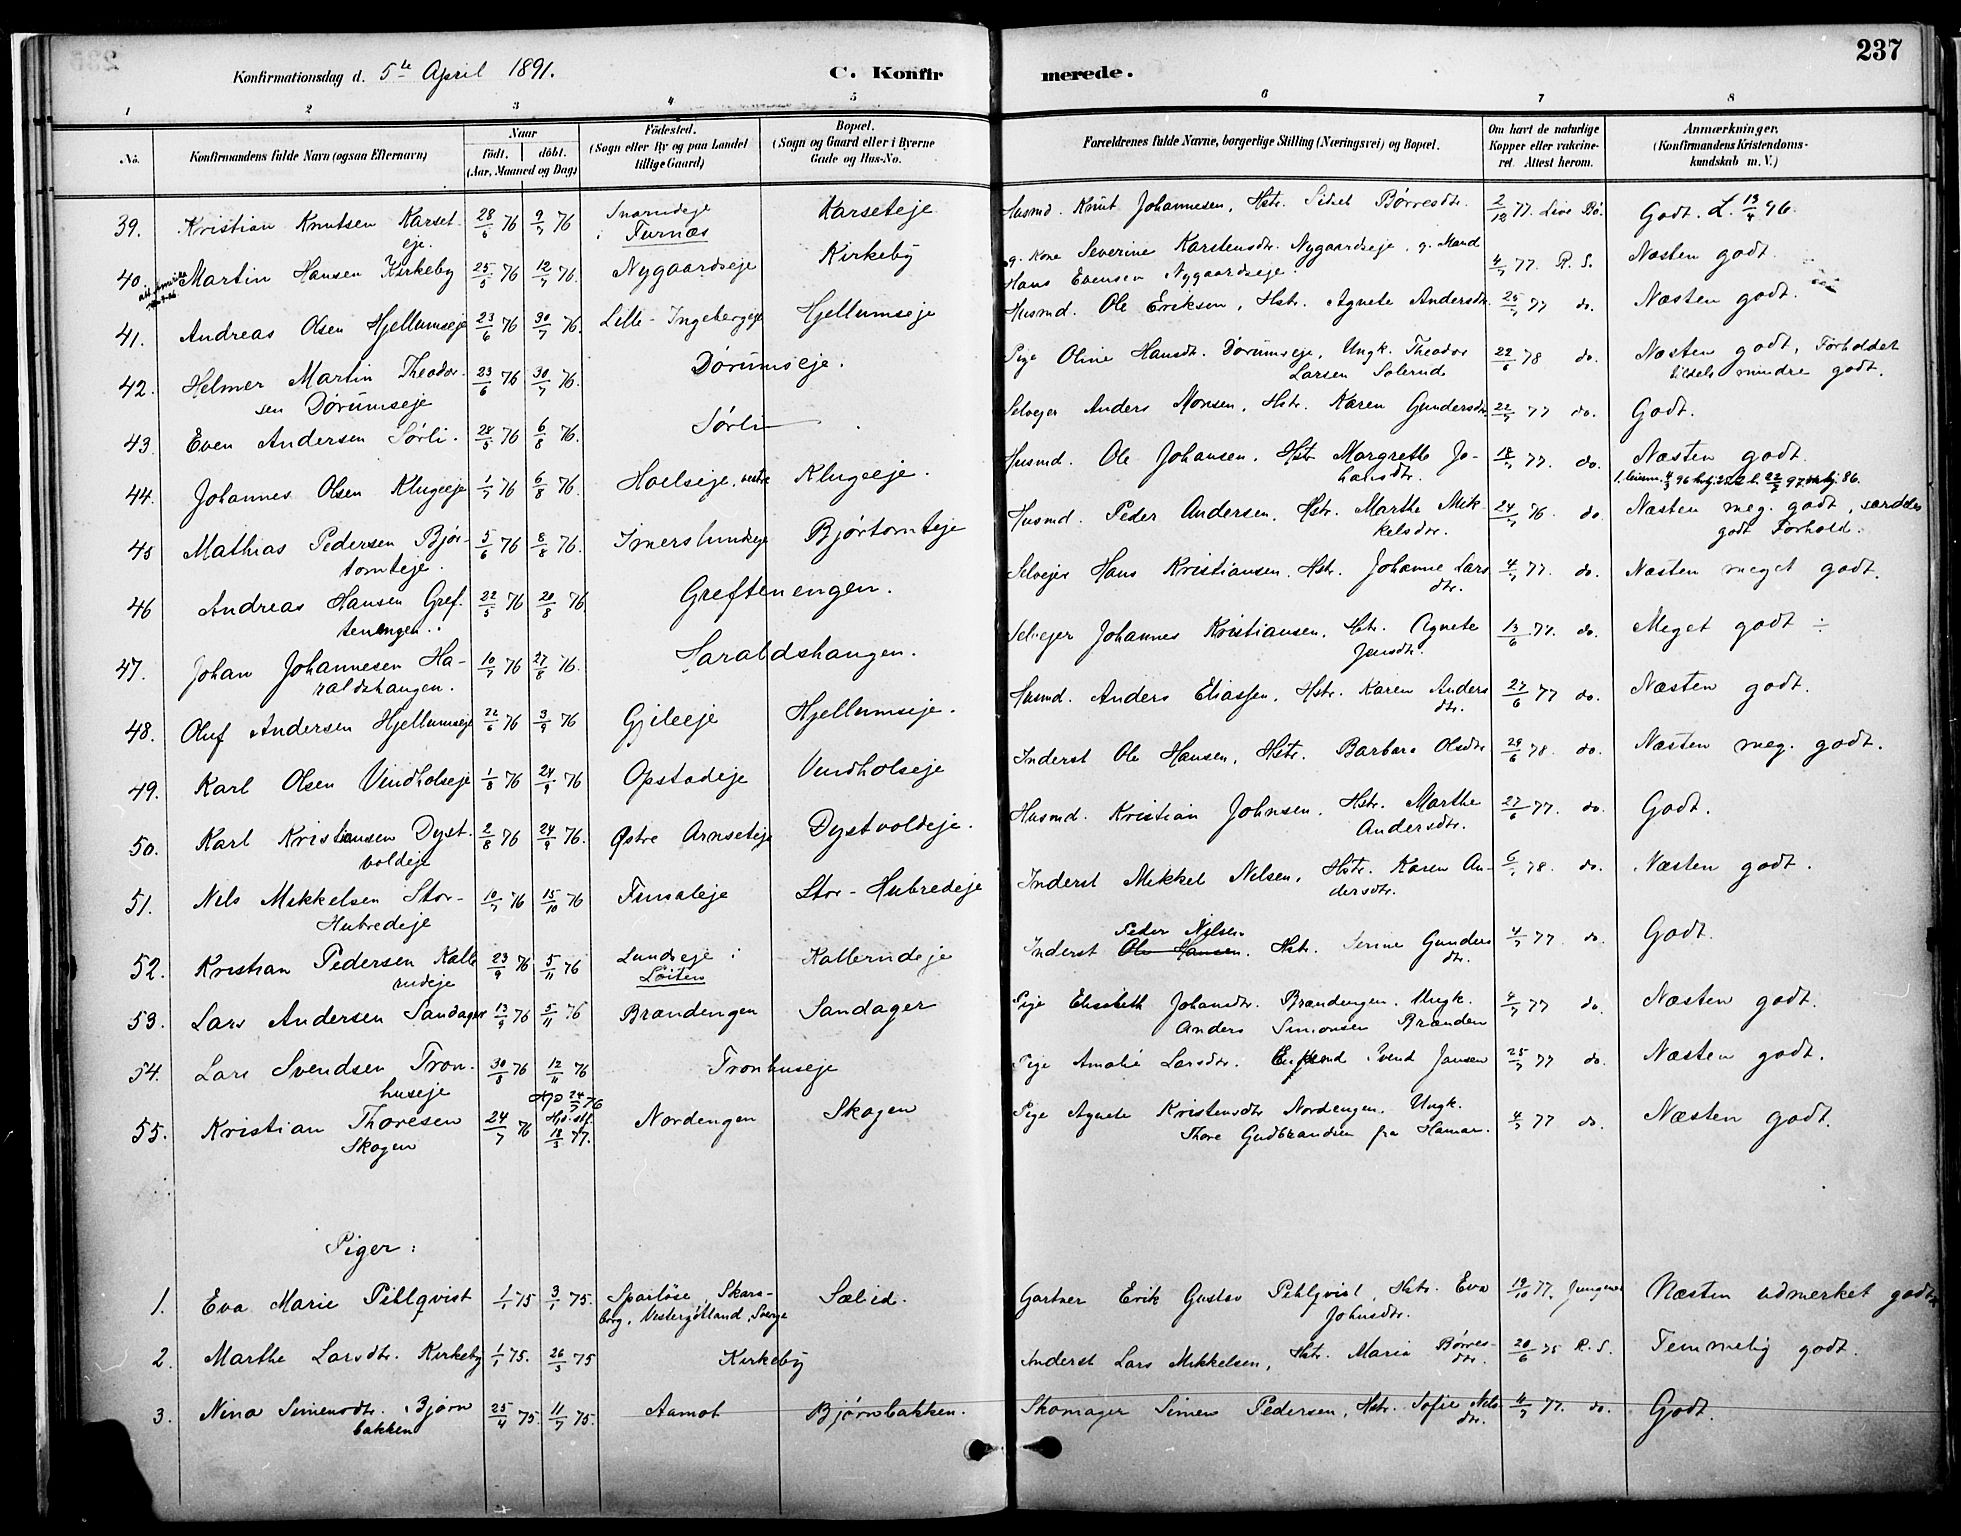 237
Konfirmationsdag d. 5te April 1891. C. Konfirmerede.
1 2 3 4 5 6 7 8
No. Konfirmandens fulde Navn (ogsaa Efternavn) Naar født. døbt. (Aar, Maaned og Dag) Fødested. (Sogn eller By og paa Landet tillige Gaard) Bopæl. (Sogn og Gaard eller i Byerne Gade og Hus-No. Forældrenes fulde Navne, borgerlige Stilling (Næringsvei) og Bopæl. Om havt de naturlige Kopper eller vakcineret. Attest herom. Anmærkninger. (Konfirmandens Kristendomskundskab m. V.)
39. Kristian Knutsen Karset- 28/6 76 9/7 76 Karseteje Husmd. Knut Johannesen, Hstr. Sidsel Børresdtr. 2/12 77. Godt. L. 13/4 96.
eje. i Furnæs
40. Martin Hansen Kirkeby 25/5 76 12/7 76. Nygaardseje Kirkeby g. Kone Severine Karstensdtr. Nygaardseje, g. Mand 4/7 77. R. S. Næsten godt.
Hans Evensen Nygaardseje.
41. Andreas Olsen Hjellumseje 23/6 76 30/7 76. Lille-Ingebergeje Hjellumseje Husmd. Ole Eriksen, Hstr. Agnete Andersdtr. 25/7 77 do. Næsten godt.
42. Helmer Martin Theodor- 23/6 76 30/7 76. Dørumseje. Pige Oline Hansdt. Dørumseje, Ungk. Theodor 22/6 78 do. Næsten godt, Forholdet
sen Dørumseje Larsen Solerud tildels mindre godt.
43. Even Andersen Sørli. 24/5 76 6/8 76. Sørli Selvejer Anders Monsen, Hstr. Karen Gundersdtr 22/7 77 do. Godt.
44. Johannes Olsen Klugeeje 1/7 76 6/8 76. Hoelseje, vestre Klugeeje. Husmd. Ole Johansen, Hstr. Margrethe Jo- 18/7 77. do. Næsten godt.
hansdtr.
45 Mathias Pedersen Bjør- 5/6 76 8/8 76. Imerslundseje Bjørtomteje Husmd. Peder Andersen, Hstr. Marthe Mik- 24/7 76 do. Næsten meg. godt, særdeles
tomteje. kelsdtr. godt Forhold.
46 Andreas Hansen Gref- 22/5 76 20/8 76 Greftenengen. Selvejer Hans Kristiansen, Hstr. Johanne Lars 4/7 77. do. Næsten meget godt.
tenengen. dtr.
47. Johan Johannesen Ha- 10/7 76 27/8 76. Haraldshaugen. Selvejer Johannes Kristiansen, Hstr. Agnete 13/6 77. do. Meget godt ÷
raldshaugen. Jensdtr.
48. Oluf Andersen Hjellumseje 22/6 76 3/9 76 Gjileeje Hjellumseje. Husmd. Anders Eliassen, Hstr. Karen Anders 27/6 77 do. Næsten godt.
dtr.
49. Karl Olsen Vindholseje 1/8 76 24/9 76 Opstadeje Vindholseje Inderst Ole Hansen, Hstr. Barbara Olsdtr 29/6 78. do. Næsten meg. godt.
50. Karl Kristiansen Dyst- 2/8 76 24/9 76. Østre Arnseteje Dystvoldeje. Husmd. Kristian Johnsen, Hstr. Marthe 27/6 77. do. Godt.
voldeje Andersdtr.
51. Nils Mikkelsen Stor- 10/7 76 15/10 76 Finsaleje Stor-Hubredeje Inderst Mikkel Nilsen, Hstr. Karen An- 6/7 78. do. Næsten godt.
Hubredeje dersdtr.
Peder Nilsen
52. Kristian Pedersen Kalle 23/9 76 5/11 76 Lundseje i Kallerudeje Inderst Ole Hansen. Hstr. Serine Gunders 4/7 77. do. Godt.
rudeje Løiten dtr.
53. Lars Andersen Sandager 13/9 76 5/11 76 Brændengen Sandager Pige Elisabeth Johansdtr. Brændengen, Ungk. 4/7 77 do. Næsten godt.
Anders Simonsen Brænden
54. Lars Svendsen Tron- 30/8 76 12/11 76 Tronhuseje Pige Amalie Larsdtr. Svend Jansen 25/7 77 do. Næsten godt.
huseje
55. Kristian Thoresen 24/7 76 18/3 77. Nordengen Skogen Pige Agnete Kristensdtr Nordengen, Ungk. 4/7 77 do. Næsten godt.
Skogen Thore Gudbrandsen fra Hamar.
Piger:
1. Eva Marie Pihlqvist 1/1 75 3/1 75. Sparlöse, Skara- Sælid. Gartner Erik Gustav Pihlqvist, Hstr. Eva 19/10 77. Næsten udmerket godt
borg, Vestergötland, Sverge Johnsdtr.
2. Marthe Larsdtr. Kirkeby 1/1 75. 26/3 75 Kirkeby Inderst Lars Mikkelsen, Hstr. Maria Børres- 20/6 75 R. S. Temmelig godt.
dtr.
3. Nina Simensdtr. Bjørn 25/4 75. 11/7 75. Aamot Bjørnbakken. Skomager Simen Pedersen, Hstr. Sofie Nils 4/7 77. do. Godt.
bakken dtr.